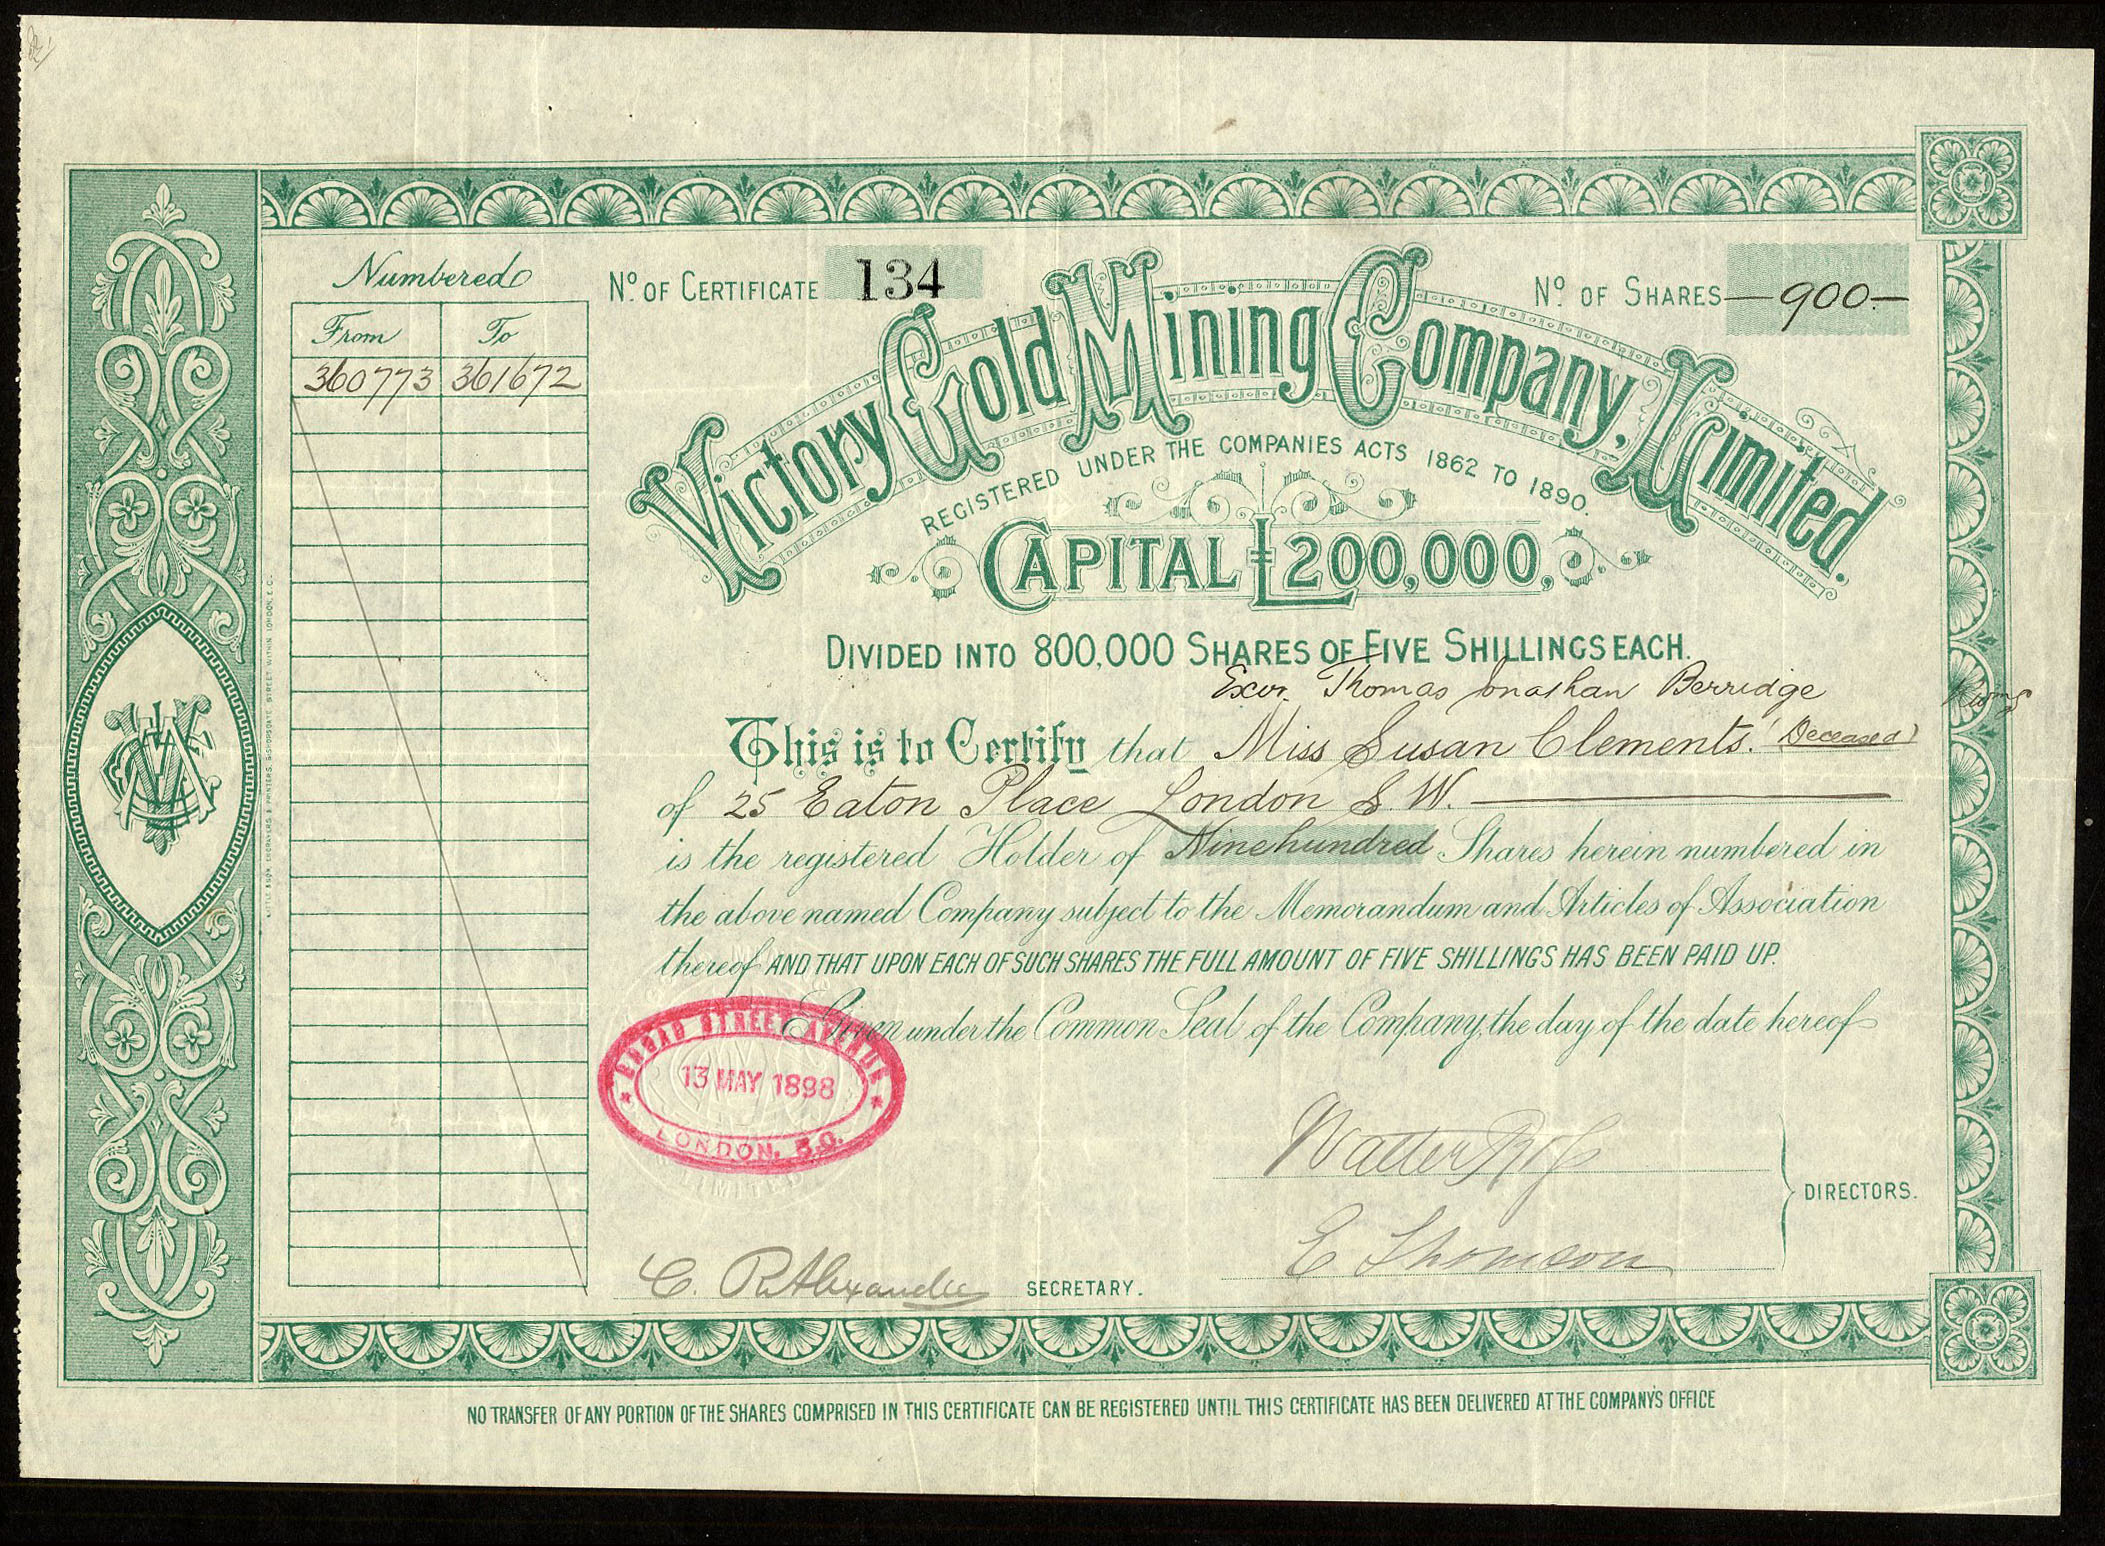 Numbered
From To
360773 361672
No. OF CERTIFICATE 134
No. OF SHARES —900.—
Victory Gold Mining Company, Limited.
REGISTERED UNDER THE COMPANIES ACTS 1862 TO 1890.
CAPITAL £200,000,
DIVIDED INTO 800,000 SHARES OF FIVE SHILLINGS EACH.
Exor. Thomas Jonathan Berridge
This is to Certify that Miss Susan Clements. (Deceased)
of 25 Eaton Place London S.W.
is the registered Holder of Nine hundred Shares herein numbered in
the above named Company subject to the Memorandum and Articles of Association
thereof AND THAT UPON EACH OF SUCH SHARES THE FULL AMOUNT OF FIVE SHILLINGS HAS BEEN PAID UP.
Given under the Common Seal of the Company, the day of the date hereof
BROAD STREET AVENUE
13 MAY 1898
LONDON, E.C.
LIMITED
Walter
DIRECTORS.
E Thomson
C. R. Alexander SECRETARY.
NO TRANSFER OF ANY PORTION OF THE SHARES COMPRISED IN THIS CERTIFICATE CAN BE REGISTERED UNTIL THIS CERTIFICATE HAS BEEN DELIVERED AT THE COMPANY'S OFFICE
ENGRAVERS & PRINTERS, BISHOPSGATE STREET WITHIN LONDON, E.C.